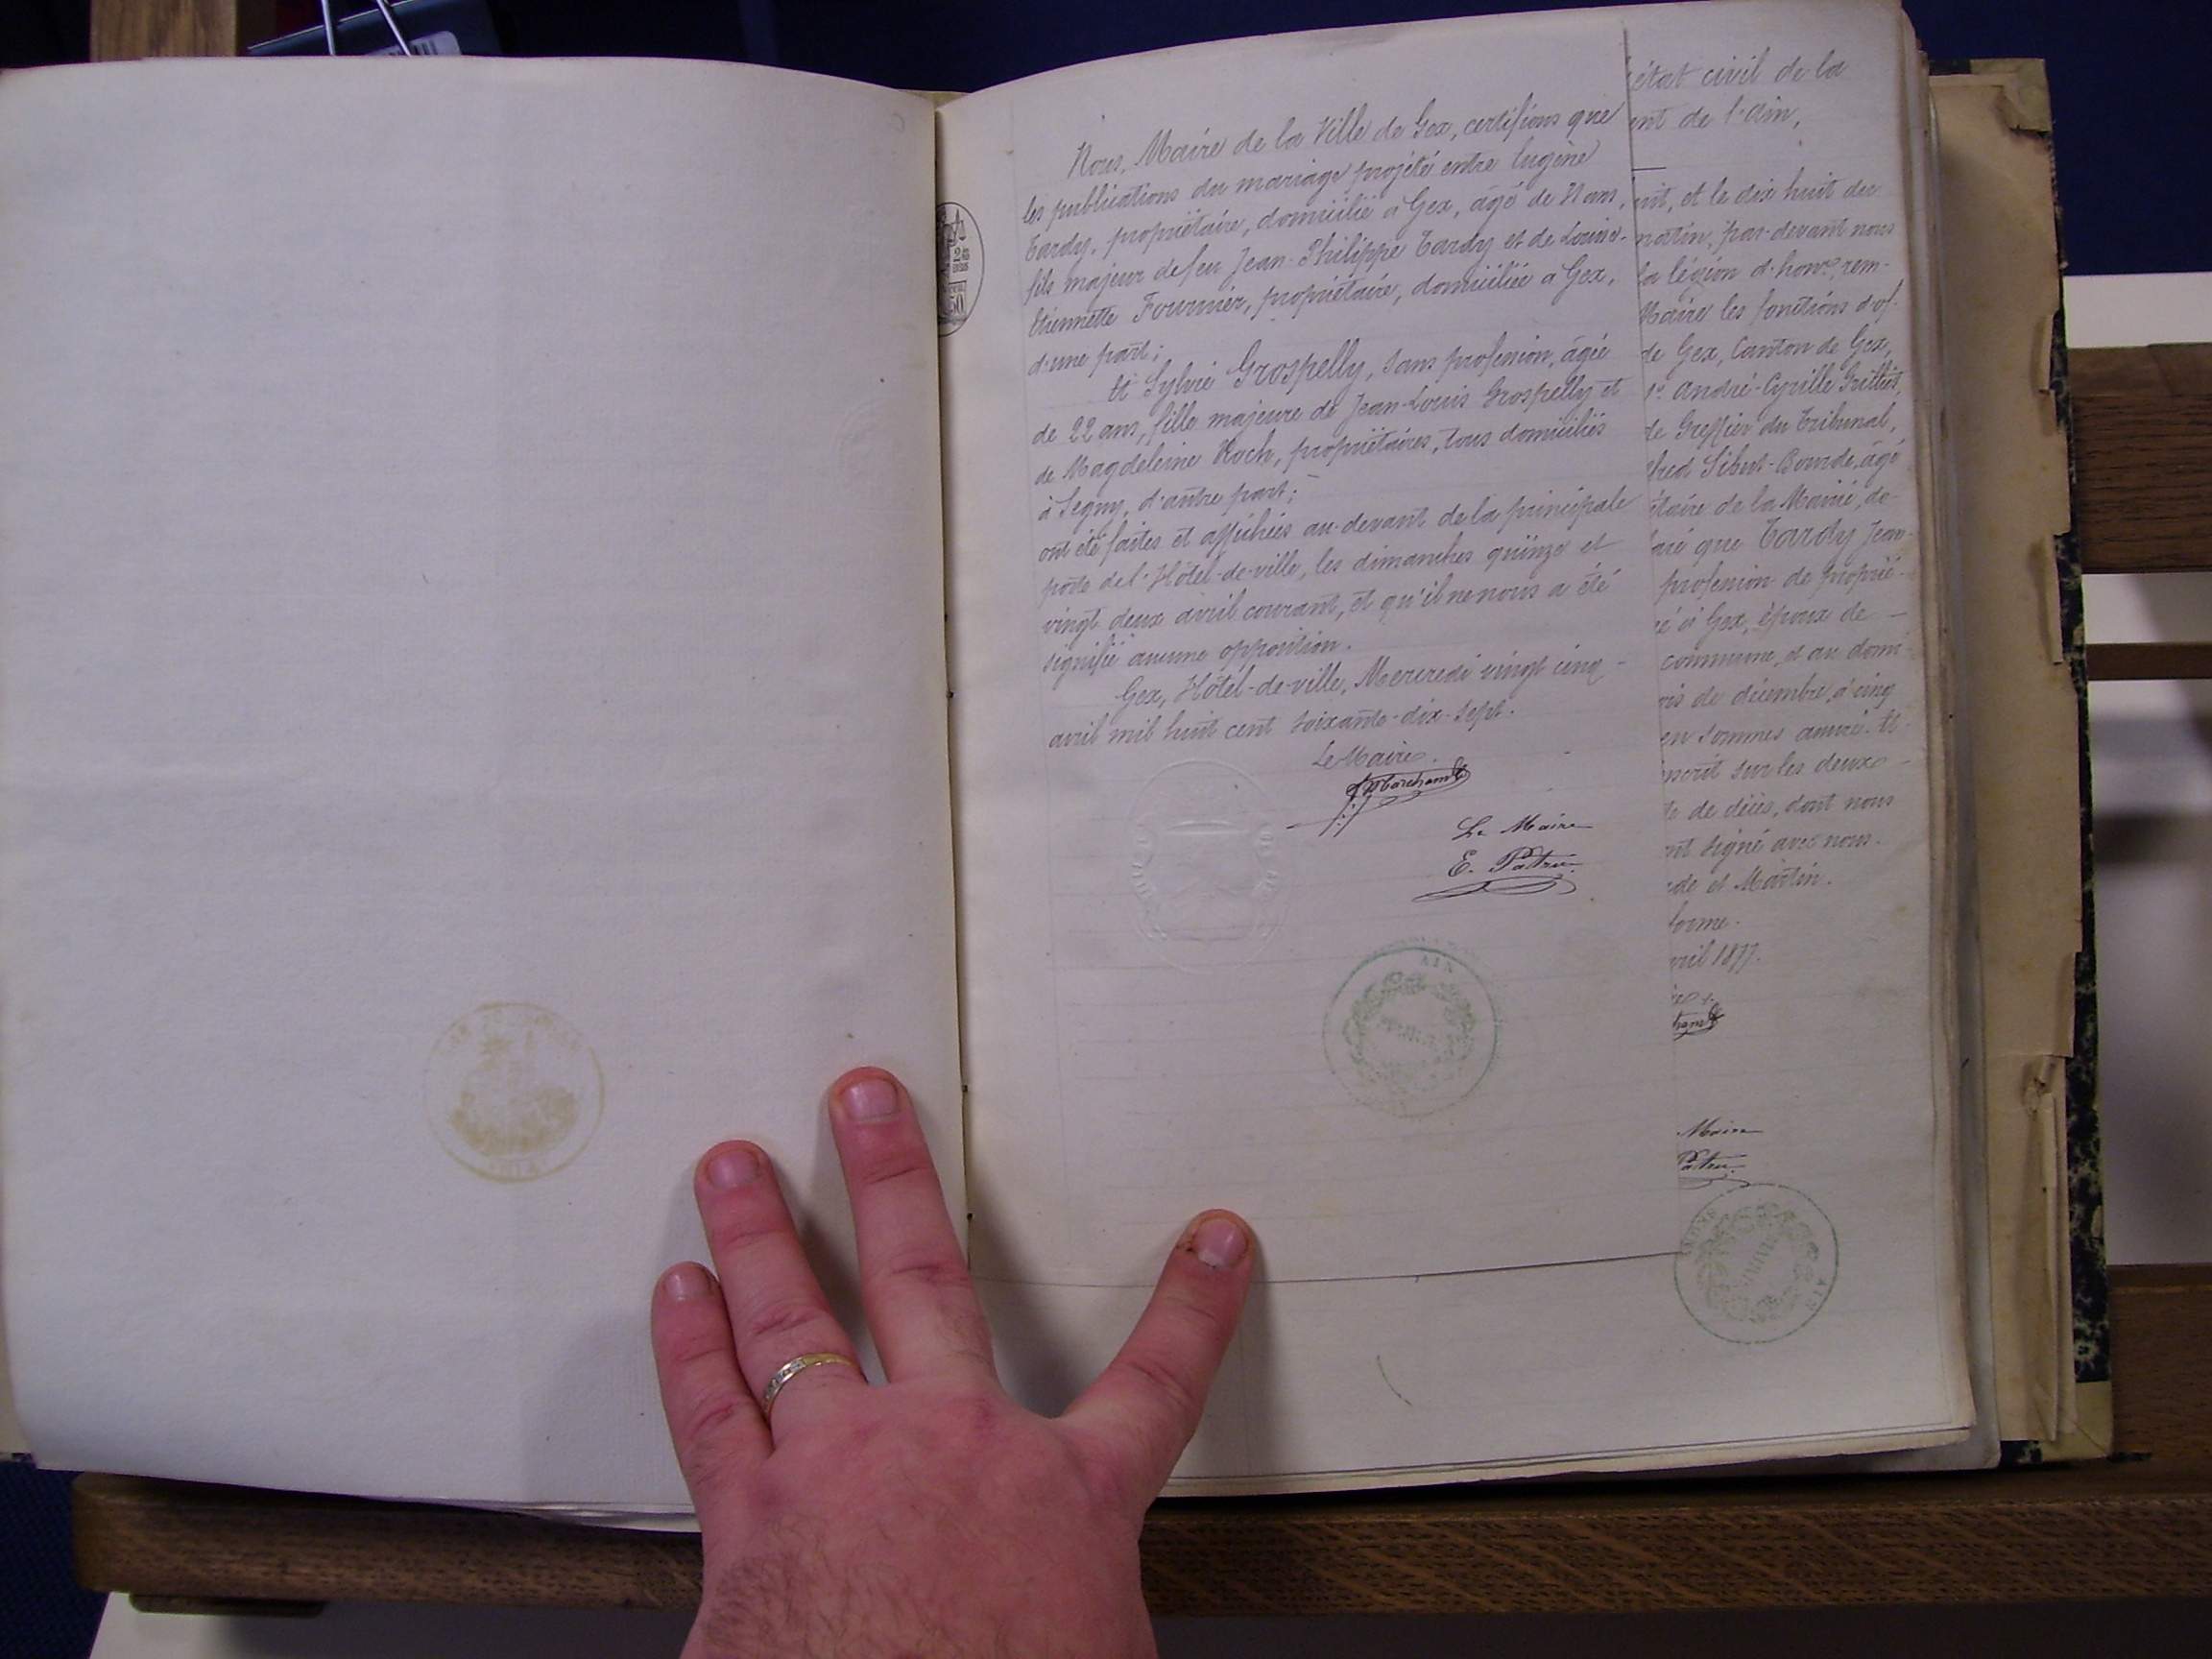 Nous, Maire de la Ville de Gex, certifions que
les publications du mariage projeté entre Eugène
Tardy, propriétaire, domicilié à Gex, âgé de 31 ans,
fils majeur de feu Jean-Philippe Tardy et de Louise-
Etiennette Fournier, propriétaire, domiciliée à Gex,
d'une part;
Et Sylvie Grospelly, sans profession, âgée
de 22 ans, fille majeure de Jean-Louis Grospelly et
de Magdeleine Roch, propriétaires, tous domiciliés
à Segny, d'autre part;
ont été faites et affichées au-devant de la principale
porte de l'Hôtel-de-ville, les dimanches quinze et
vingt deux avril courant, et qu'il ne nous a été
signifié aucune opposition.
Gex, Hôtel-de-ville, Mercredi vingt cinq
avril mil huit cent soixante-dix-sept.
Le Maire.
Marchand
Le Maire
E. Patru
AIN
MAIRIE
50
état civil de la
de l'Ain,
et le dix huit du
matin, par-devant nous
la légion d'honr, rem-
Maire les fonctions d'of-
de Gex, Canton de Gex,
André-Cyrille
de Greffier du Tribunal,
Sibert-Bourde, âgé
de la Mairie, do-
que Tardy Jean-
profession de proprié-
à Gex, époux de
commune, et au domi-
de décembre, à cinq
en sommes assuré. Et
sur les deux
de décès, dont nous
signé avec nous.
et Martin.
1877.
Maire
Patru
MAIRIE
AIN